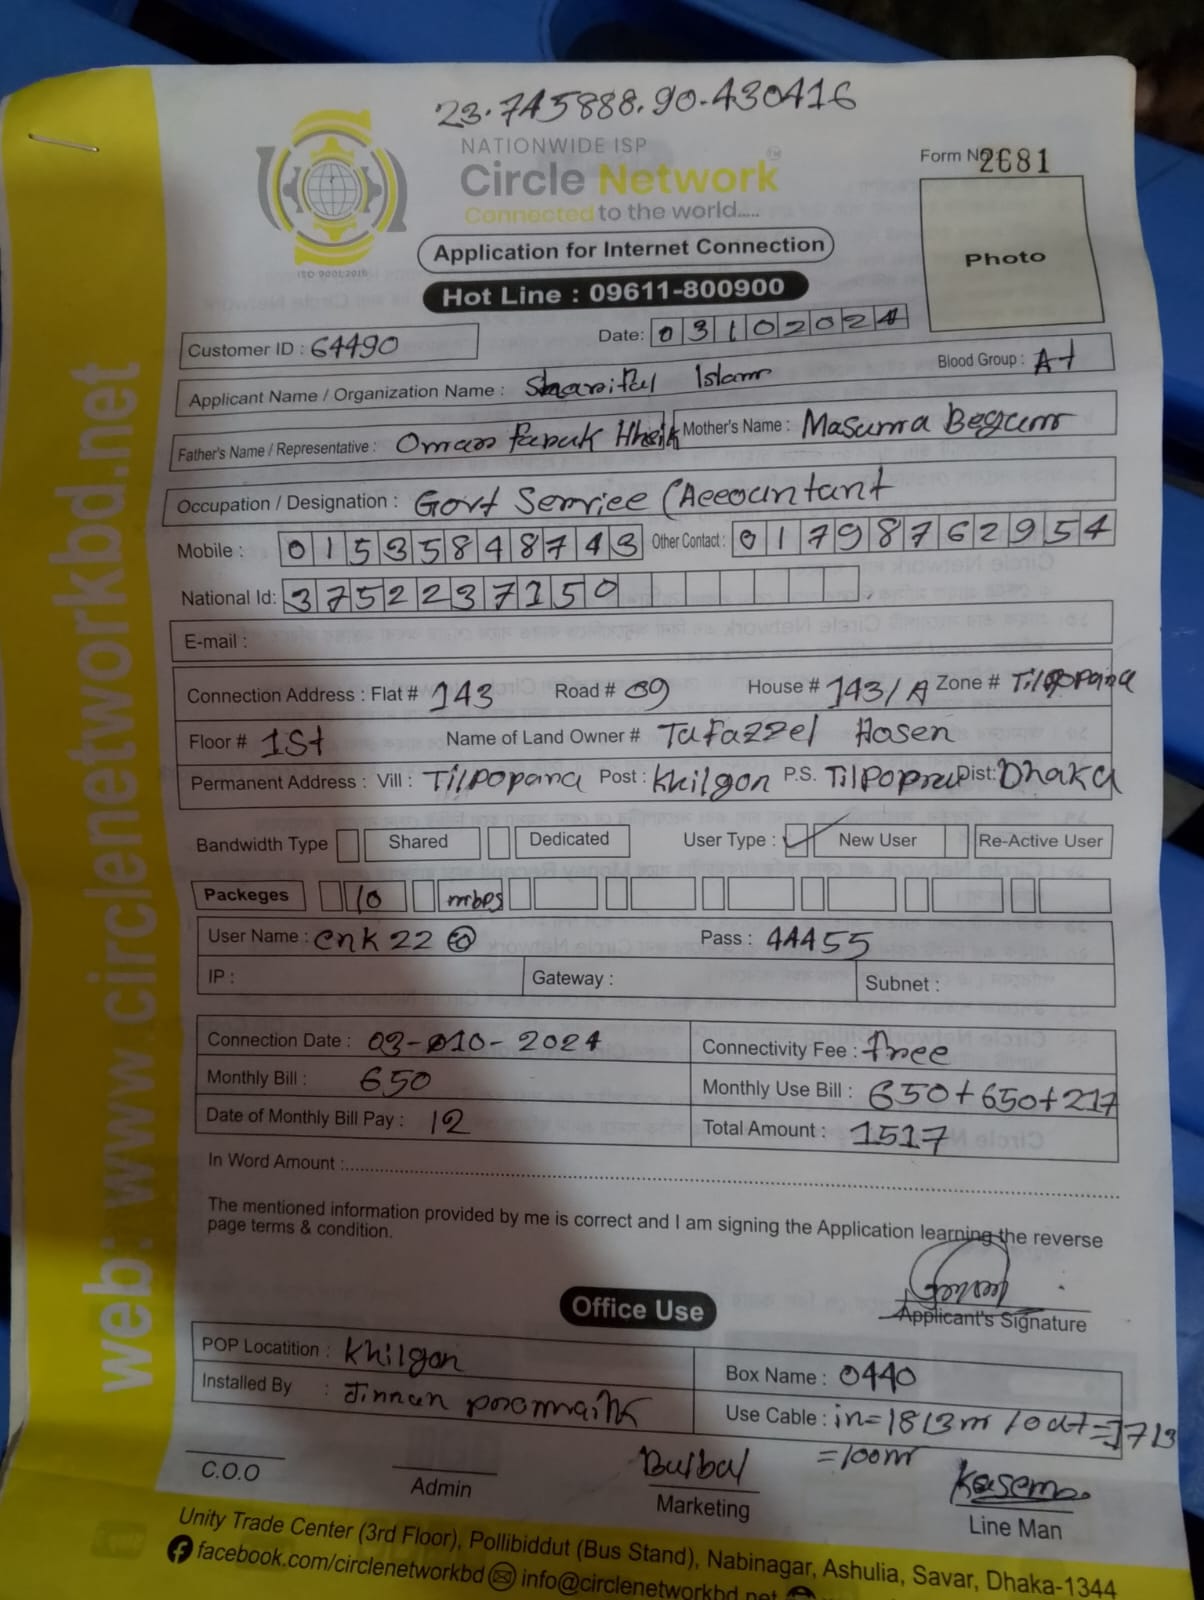 23.745888.90.430416
NATIONWIDE ISP
Circle Network TM
Connected to the world.....
ISO 9001:2015
Application for Internet Connection
Hot Line : 09611-800900
Form No 2681
Photo
Customer ID : 64490
Date: 03102024
Applicant Name / Organization Name : Shariful Islam
Blood Group : A+
Father's Name / Representative : Omar Faruk
Mother's Name : Masuma Begum
Occupation / Designation : Govt Service (Accountant
Mobile : 01535848743
Other Contact : 01798762954
National Id: 3752237150
E-mail :
Connection Address : Flat # 143 Road # 09 House # 143/A Zone # Tilpopara
Floor # 1st Name of Land Owner # Tafazzel Hosen
Permanent Address : Vill : Tilpopara Post : Khilgon P.S. Dist: Dhaka
Bandwidth Type Shared Dedicated User Type : ✓ New User Re-Active User
Packeges 10 mbps
User Name : cnk 22 Pass : 44455
IP : Gateway : Subnet :
Connection Date : 03-010-2024 Connectivity Fee : free
Monthly Bill : 650 Monthly Use Bill : 650+650+217
Date of Monthly Bill Pay : 12 Total Amount : 1517
In Word Amount :
The mentioned information provided by me is correct and I am signing the Application learning the reverse
page terms & condition.
Applicant's Signature
Office Use
POP Locatition : Khilgon Box Name : 0440
Installed By : Use Cable : in=1813m /out=1713
=100m
C.O.O
Admin
Marketing
Kasem
Line Man
Unity Trade Center (3rd Floor), Pollibiddut (Bus Stand), Nabinagar, Ashulia, Savar, Dhaka-1344
facebook.com/circlenetworkbd info@circlenetworkbd.net
web: www.circlenetworkbd.net